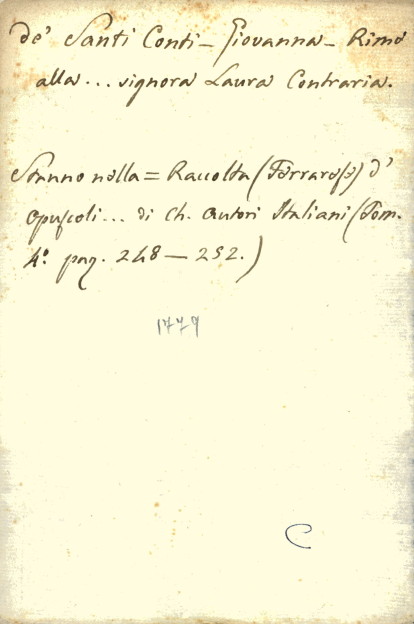 de' Santi Conti - Giovanna - Rime
alla... signora Laura Contraria.
Stanno nella = Raccolta (Ferrarese) d'
Opuscoli... di Ch. Autori Italiani (Tom.
4.º pag. 248 - 252.)
1779
C